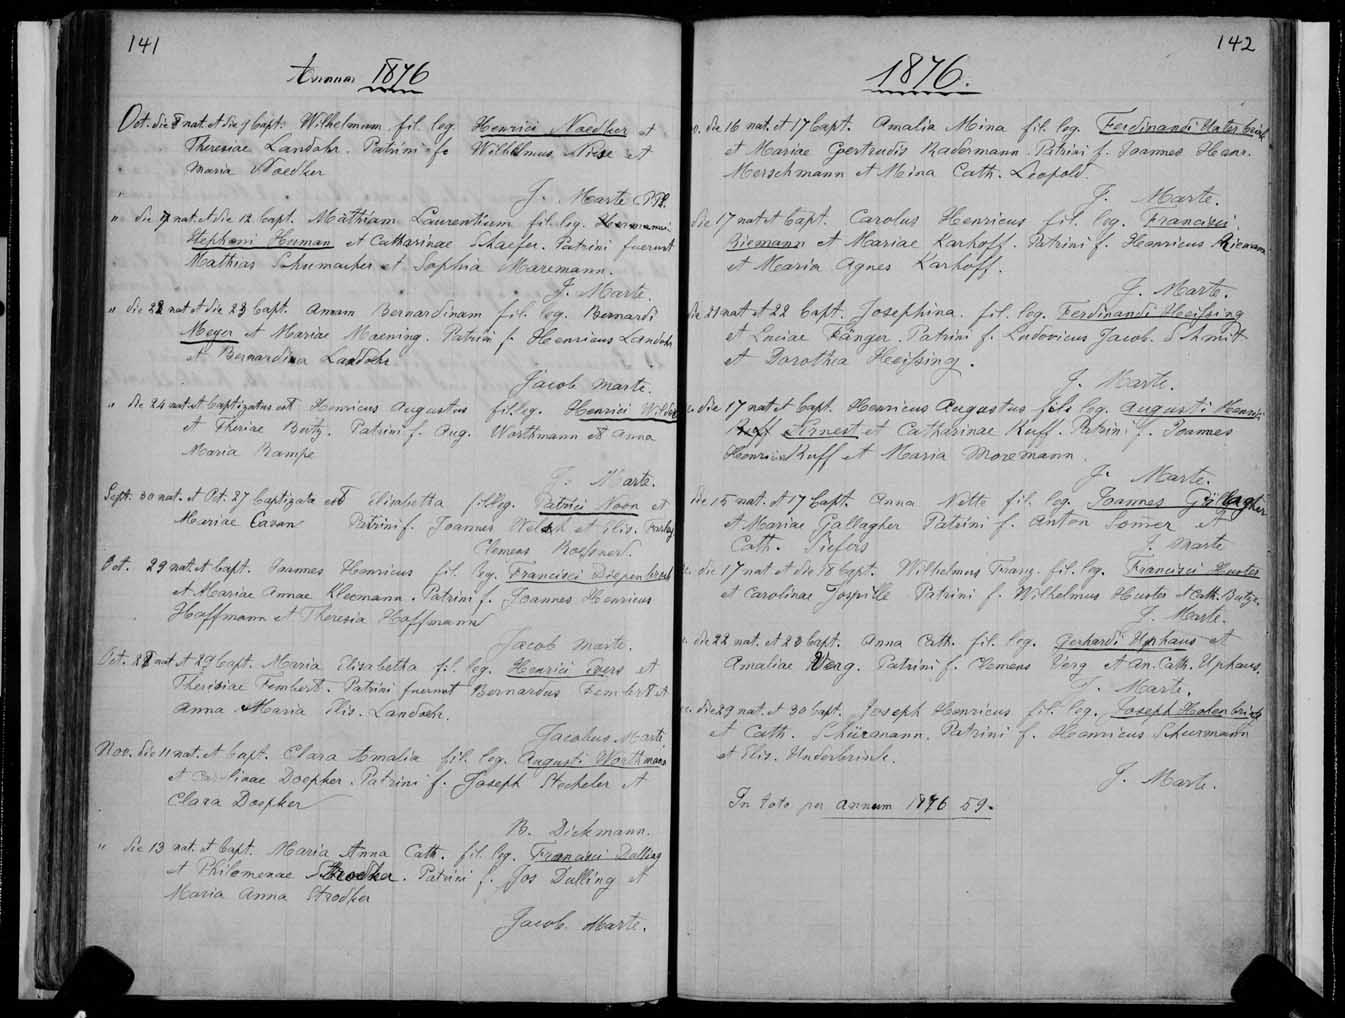 141
Annum 1876
Oct. die 8 nat. et die 9 bapt. Wilhelmum fil. leg. Henrici Noedker et
Theresiae Landohr. Patrini f. Wilhelmus Niese et
Maria Noedker
J. Marte
" die nat. et die 12 bapt. Mathiam Laurentium fil. leg.
Stephani Human et Catharinae Schaefer. Patrini fuerunt
Mathias Schumacher et Sophia Maremann.
J. Marte.
" die 22 nat et die 23 bapt. Annam Bernardinam fil. leg. Bernardi
Meyer et Mariae Moening. Patrini f. Henricus Landohr
et Bernardina Landohr
Jacob Marte.
" die 24 nat. et baptizatus est Henricus Augustus fil leg. Henrici
et Theresae Bertz. Patrini f. Aug. Worthmann et Anna
Maria Rampe
J. Marte.
Sept. 30 nat. et Oct. 27 baptizata est Elisabetha fil leg. Patrici Noon et
Mariae Cavan Patrini f. Joannes Welsh et Elis.
Clemens
Oct. 29 nat. et bapt. Joannes Henricus fil. leg. Francisci Diepenbrock
et Mariae Annae Kleemann. Patrini f. Joannes Henricus
Hoffmann et Theresia Hoffmann
Jacob Marte.
Oct. 28 nat. et 29 bapt. Maria Elisabetha fil. leg. Henrici Evers et
Theresiae Tembert. Patrini fuerunt Bernardus Tembert et
Anna Maria Elis. Landoehr.
Jacobus Marte
Nov. die 11 nat. et bapt. Clara Amalia fil. leg. Augusti Worthmann
et Carolinae Doepker. Patrini f. Joseph Stecheler et
Clara Doepker
B. Dickmann.
" die 13 nat. et bapt. Maria Anna Cath. fil. leg. Francisci Dulling
et Philomenae Strodker. Patrini f. Jos Dulling et
Maria Anna Strodker
Jacob Marte.
142
1876.
die 16 nat. et 17 bapt. Amalia Mina fil. leg. Ferdinandi
et Mariae Gertrudis Radermann. Patrini f. Joannes Henr.
Merschmann et Mina Cath. Leopold.
J. Marte.
die 17 nat et bapt. Carolus Henricus fil. leg. Francisci
Riemann et Mariae Karhoff. Patrini f. Henricus Riemann
et Maria Agnes Karhoff.
J. Marte.
die 21 nat et 22 bapt. Josephina fil. leg. Ferdinandi Heissing
et Luciae Fänger. Patrini f. Ludovicus Jacob Schmit
et Dorothea Heissing.
J. Marte.
die 17 nat et bapt. Henricus Augustus fil leg. Augusti Henrici
Ernest et Catharinae Kuff. Patrini f. Joannes
Henricus Kuff et Maria Moremann.
J. Marte.
die 15 nat. et 17 bapt. Anna Nette fil. leg. Joannes Gallagher
et Mariae Gallagher Patrini f. Anton Sonner et
Cath. Siefers
J. Marte
die 17 nat et die 18 bapt. Wilhelmus Franz. fil. leg. Francisci Huster
et Carolinae Jospille Patrini f. Wilhelmus Huster et Cath. Butze.
J. Marte.
die 22 nat. et 23 bapt. Anna Cath. fil. leg. Gerhardi Uphaus et
Amaliae Verg. Patrini f. Clemens Verg et An. Cath. Uphaus.
J. Marte.
die 29 nat. et 30 bapt. Joseph Henricus fil. leg. Joseph Hohenbrink
et Cath. Schürmann. Patrini f. Henricus Schurmann
et Elis. Underbrink.
J. Marte.
In toto per annum 1876 59.